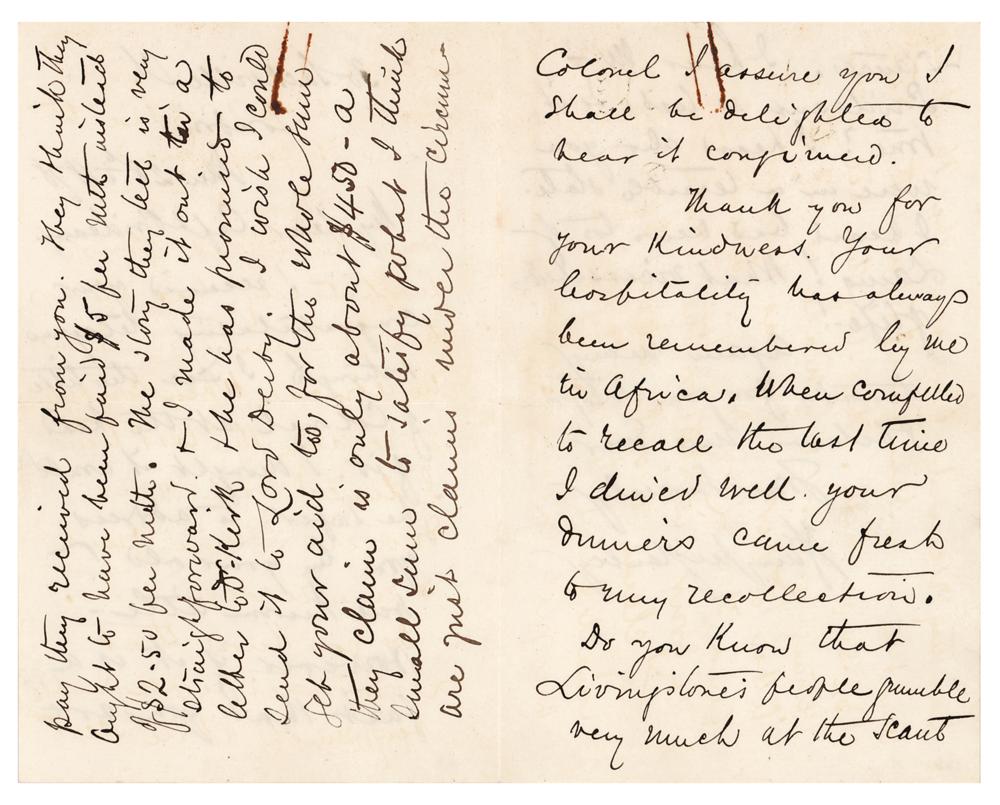 Colonel I assure you I
shall be delighted to
hear it confirmed.
Thank you for
your kindness. Your
hospitality has always
been remembered by me
in Africa. When compelled
to recall the last time
I dined well. your
dinners came fresh
to my recollection.
Do you know that
Livingstone's people grumble
very much at the scant
pay they received from you. They think they
ought to have been paid $5 per mnth instead
of $2-50 per mnth. The story they tell is very
straightforward. & I made it out in a
letter to Dr. Kirk & he has promised to
send it to Lord Derby I wish I could
get your aid too, for the whole sum
they claim is only about $450 - a
small sum to satisfy what I think
are just claims under the circum-